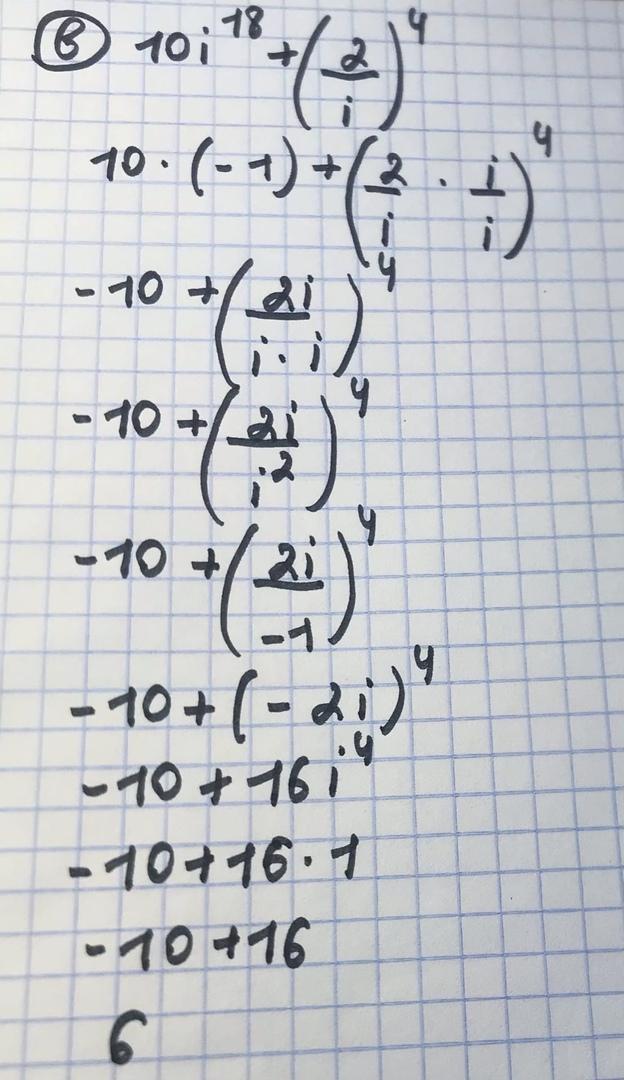 в) 10i^18 + (2/i)^4
10 · (-1) + (2/i · i/i)^4
-10 + (2i/(i · i))^4
-10 + (2i/i^2)^4
-10 + (2i/-1)^4
-10 + (-2i)^4
-10 + 16i^4
-10 + 16 · 1
-10 + 16
6